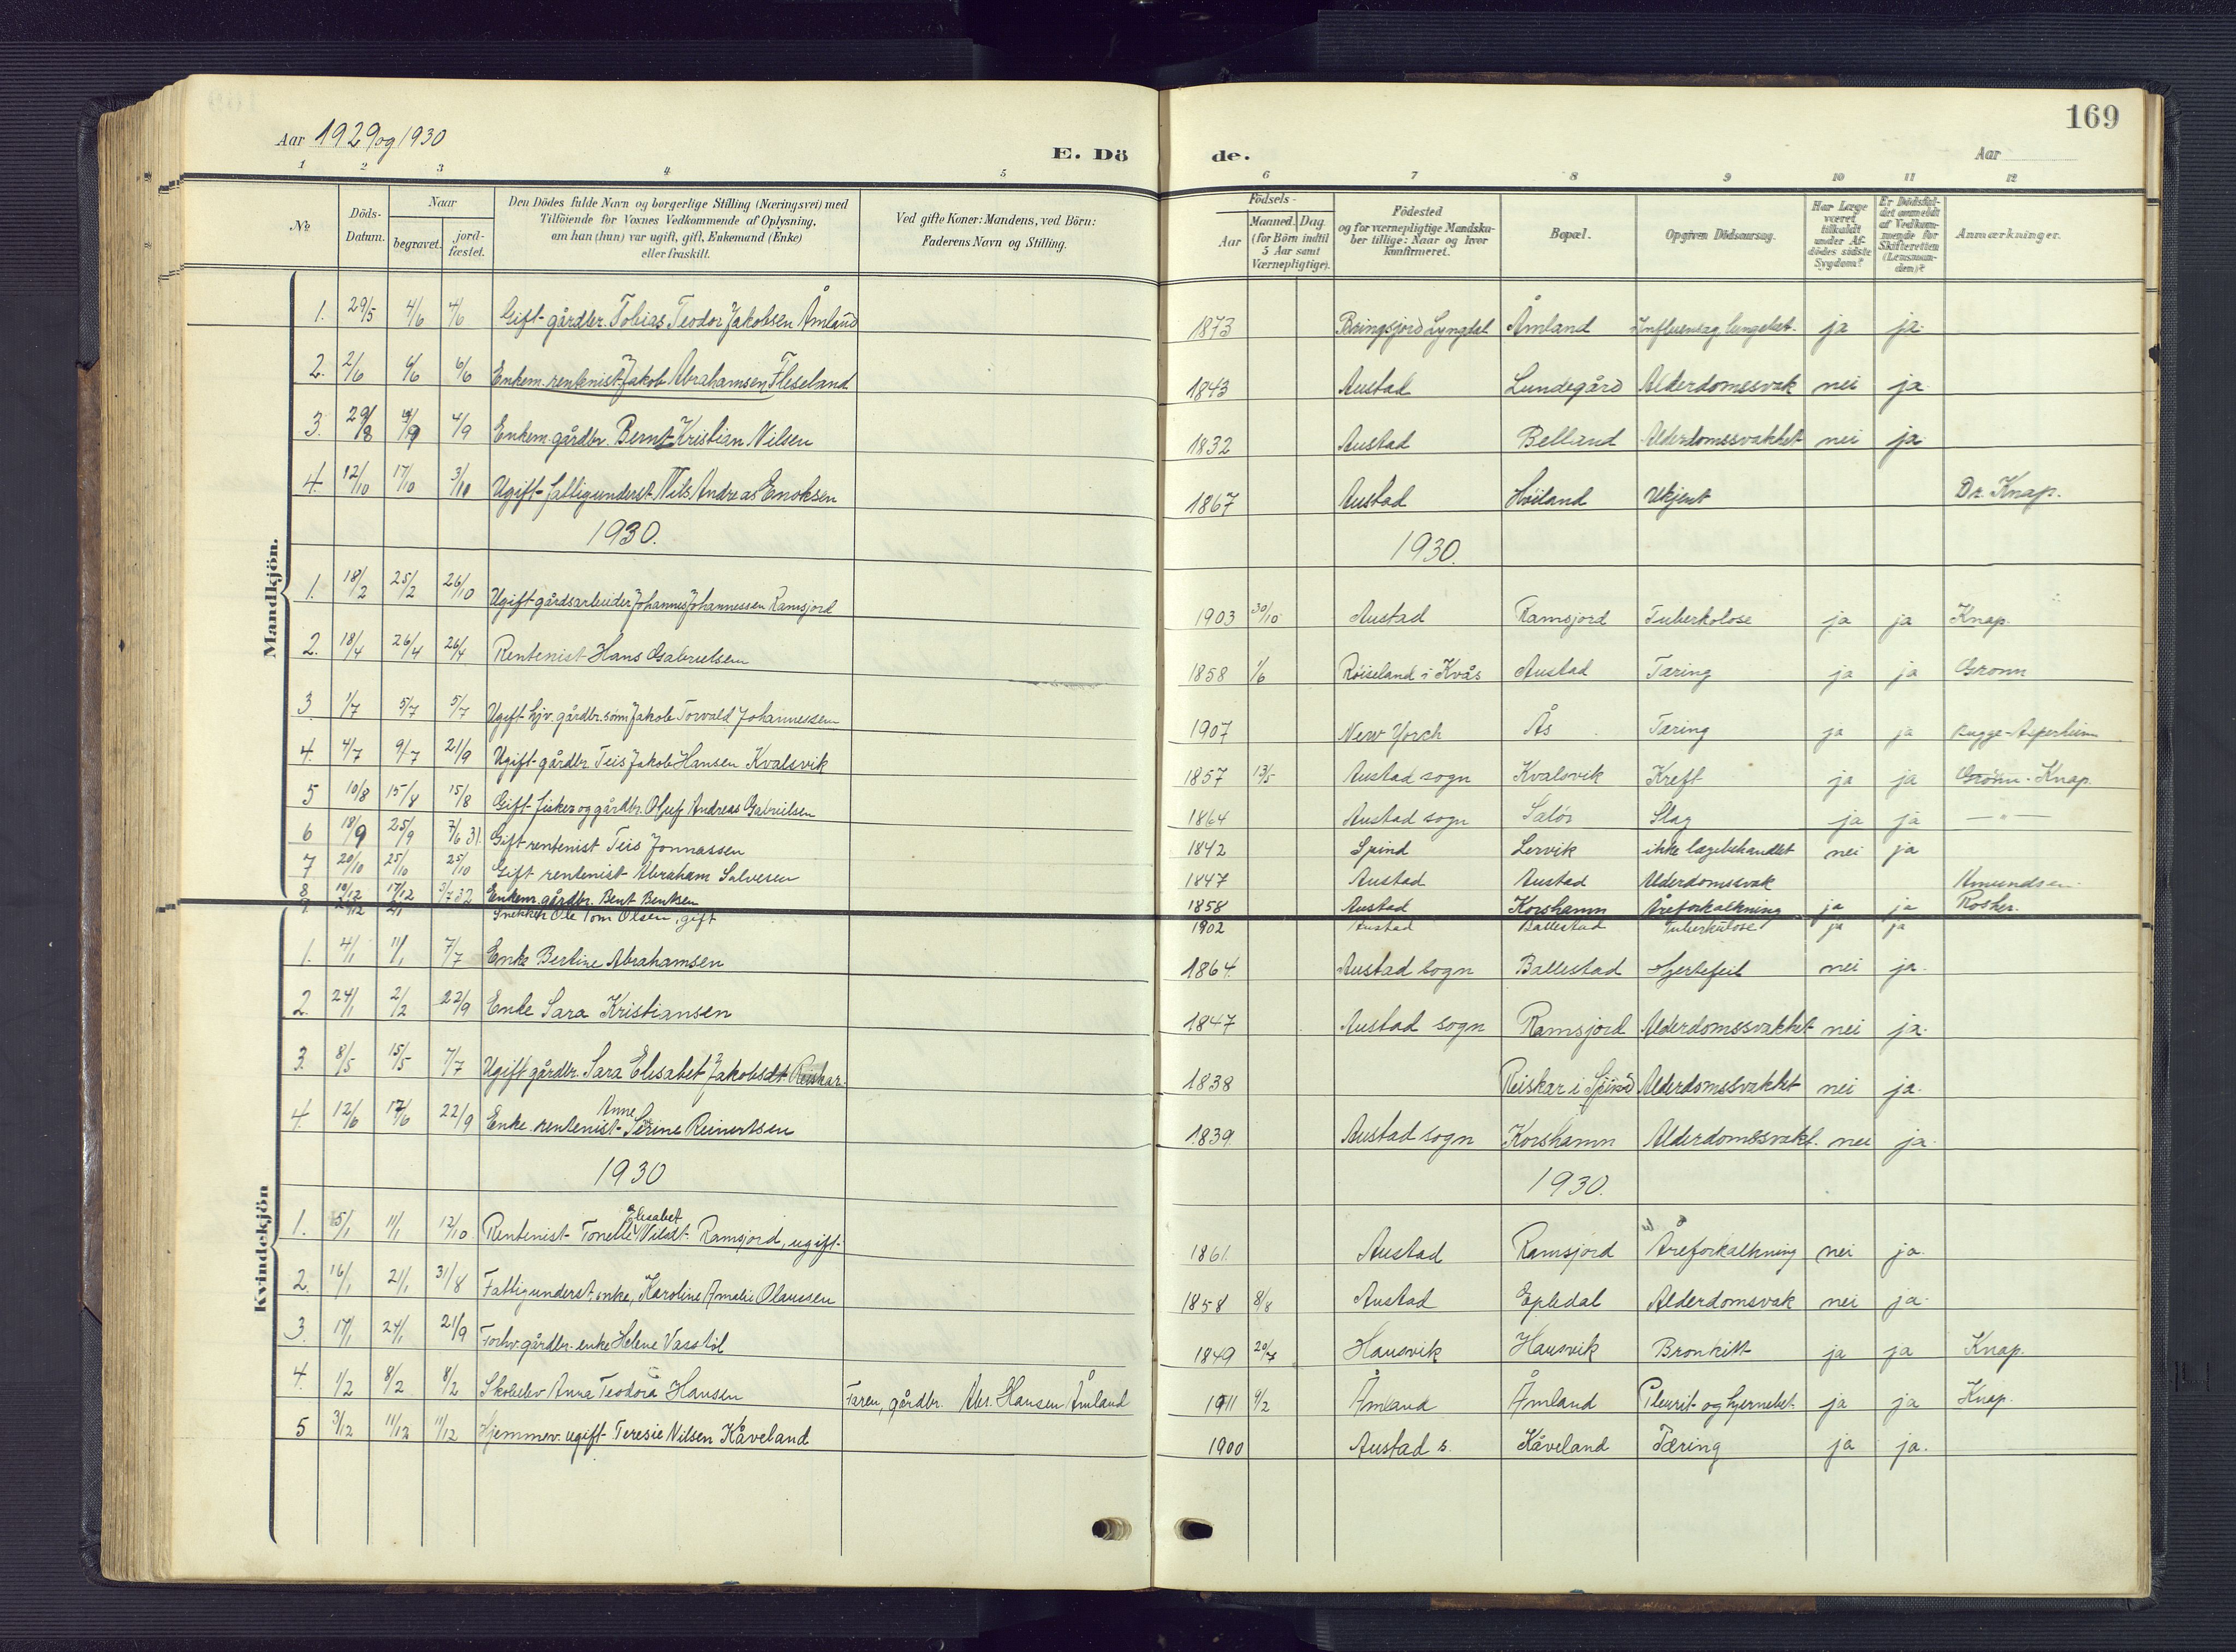 169
Aar 1929 og 1930
E. Dö de.
Aar
1 2 3 4 5 6 7 8 9 10 11 12
No.
Döds-Datum.
Naar
begravet.
jord-fæstet.
Den Dödes fulde Navn og borgerlige Stilling (Næringsvei) med
Tilföiende for Voxnes Vedkommende af Oplysning,
om han (hun) var ugift, gift, Enkemand (Enke)
eller fraskilt.
Ved gifte Koner: Mandens, ved Börn:
Faderens Navn og Stilling.
Födsels-
Aar
Maaned. Dag
(for Börn indtil
5 Aar samt
Værnepligtige).
Födested
og for værnepligtige Mandska-
ber tillige: Naar og hvor
konfirmeret.
Bopæl.
Opgiven Dödsaarsag.
Har Læge
været
tilkaldt
under Af-
dödes sidste
Sygdom?
Er Dödsfal-
det anmeldt
af Vedkom-
mende for
Skifteretten
(Lensman-
den)?
Anmærkninger.
Mandkjön.
1. 29/5 4/6 4/6 Gift gårdbr. Tobias Teodor Jakobsen Åmland 1873 Bringsjord Lyngdal Åmland Influensa, lungebet. ja ja
2. 2/6 6/6 6/6 Enkem. rentenist Jakob Abrahamsen Fleseland 1843 Austad Lundegård Alderdomssvak nei ja
3. 29/8 4/9 4/9 Enkem. gårdbr. Bernt Kristian Nilsen 1832 Austad Belland Alderdomssvakhet nei ja
4. 12/10 17/10 3/10 Ugift fattigunderst. Nils Andreas Enoksen 1867 Austad Höiland Ukjent Dr. Knap.
1930. 1930.
1. 18/2 25/2 26/10 Ugift gårdsarbeider Johannes Johannessen Ramsjord 1903 30/10 Austad Ramsjord Tuberkolose ja ja Knap.
2. 18/4 26/4 26/4 Rentenist Hans Gabrielsen 1858 1/6 Röiseland i Kvås Austad Tæring ja ja Grönn
3. 1/7 5/7 5/7 Ugift hjv. gårdbr. sönn Jakob Torvald Johannessen 1907 New Yorch Ås Tæring ja ja Rugge-Asperheim
4. 4/7 9/7 21/9 Ugift gårdbr. Teis Jakob Hansen Kvalsvik 1857 13/5 Austad sogn Kvalsvik Kreft ja ja Grönn. Knap.
5 10/8 15/8 15/8 Gift fisker og gårdbr. Oluf Andreas Gabrielsen 1864 Austad sogn Salös Slag ja ja — " —
6 18/9 25/9 7/6 31. Gift rentenist Teis Jonnassen 1842 Spind Lervik ikke lægebehandlet nei ja
7 20/10 25/10 25/10 Gift rentenist Abraham Salvesen 1847 Austad Austad Alderdomssvak Amundsen.
8 10/12 17/12 3/7 32 Enkem. gårdbr. Bent Bentsen 1858 Austad Korshamn Åreforkalkning ja ja Rosher.
9. Snekker Ole Tom Olsen, gift 1902 Austad Ballestad Tuberkulose ja ja
Kvindekjön
1. 4/1 11/1 7/7 Enke Bertine Abrahamsen 1864. Austad sogn Ballestad Hjertefeil nei ja.
2. 24/1 2/2 22/9 Enke Sara Kristiansen 1847 Austad sogn Ramsjord Alderdomssvakhet nei ja.
3. 8/5 15/5 7/7 Ugift gårdbr. Sara Elisabet Jakobsdt. Reiskar. 1838 Reiskar i Spind Alderdomssvakhet nei ja.
4. 12/6 17/6 22/9 Enke. rentenist Anne Serine Reinertsen 1839. Austad sogn Korshamn Alderdomssvakh. nei ja.
1930 1930.
1. 5/1 11/1 12/10 Rentenist Tonette Elisabet Nilsdt. Ramsjord, ugift. 1861. Austad Ramsjord Åreforkalkning nei ja.
2. 16/1 21/1 31/8 Fattigunderst. enke, Karoline Amalie Olaussen 1858 8/8 Austad Epledal Alderdomsvak nei ja.
3. 17/1 24/1 21/9 Forhv. gårdbr. enke Helene Vasstöl 1849 20/7 Hausvik Hausvik Bronkitt ja ja Knap.
4. 1/2 8/2 8/2 Skoleelev Anna Teodora Hansen Faren, gårdbr. Abr. Hansen Åmland 1911 9/2 Åmland Åmland Pleurit og hjernebet. ja ja Knap.
5 3/12 11/12 11/12 Hjemmev. ugift Teresie Nilsen Kåveland 1900 Austad s. Kåveland Tæring ja ja.